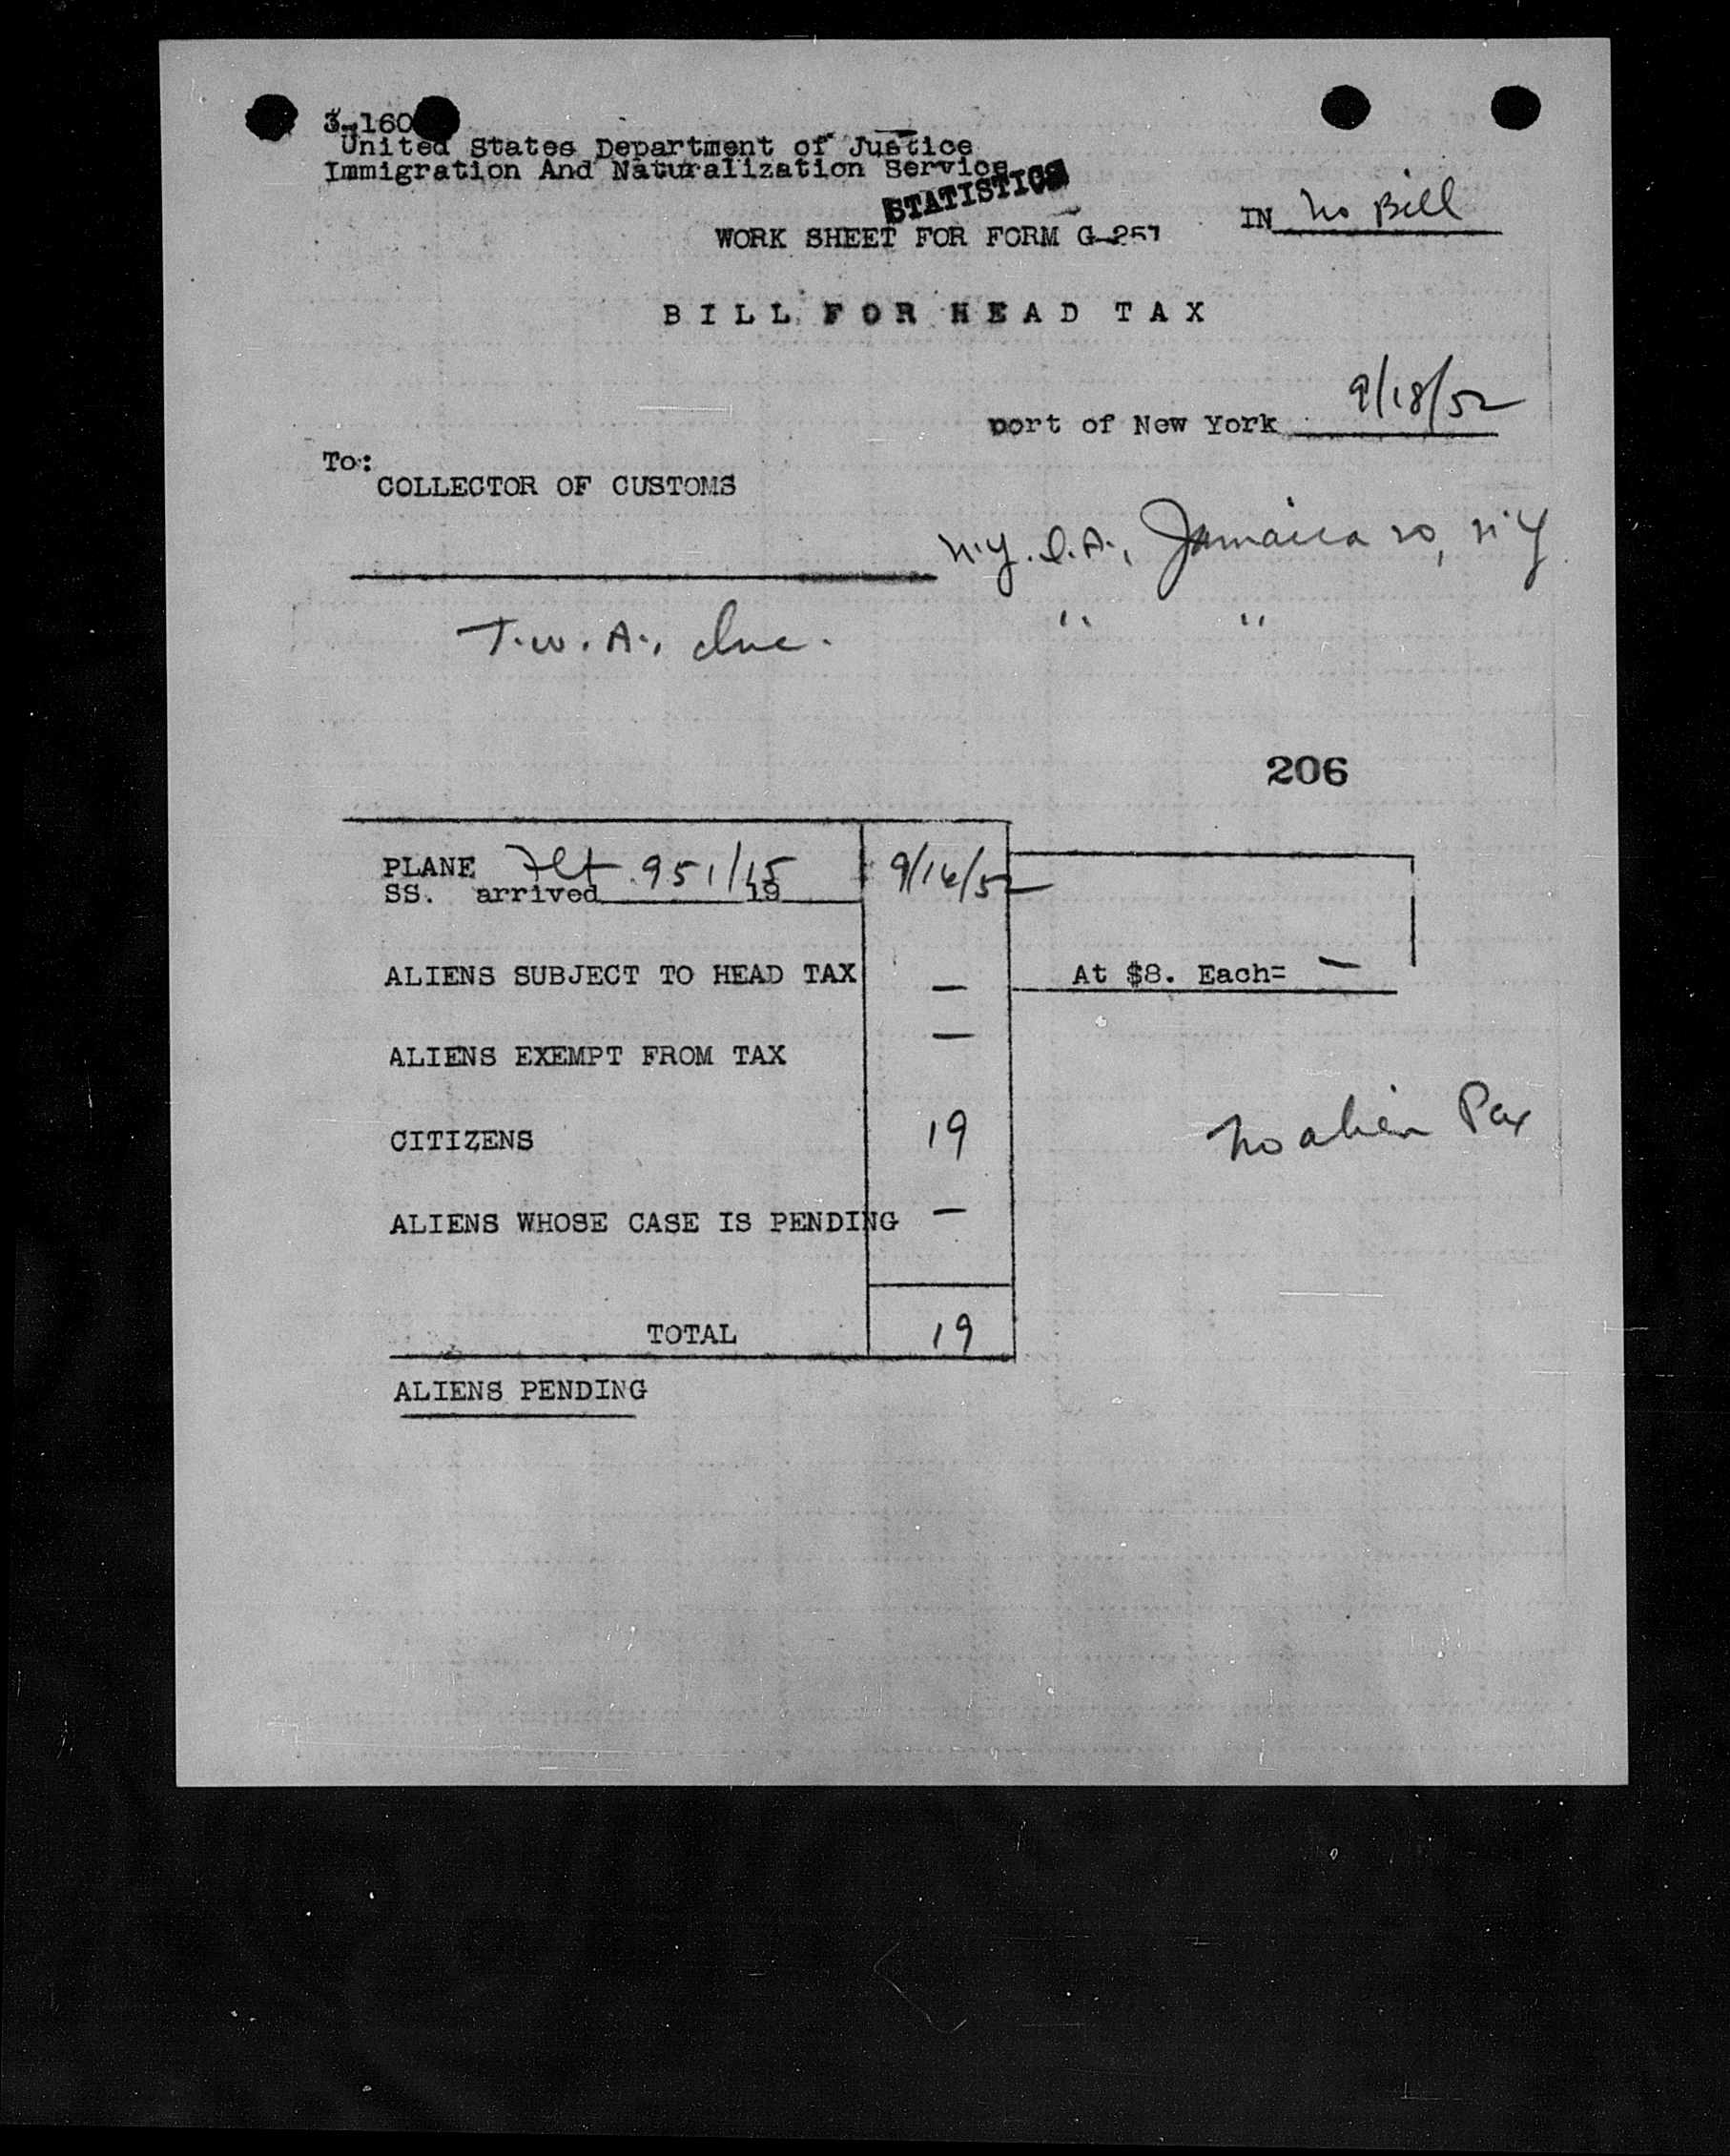 3-160
United States Department of Justice
Immigration And Naturalization Service
STATISTICS
WORK SHEET FOR FORM G-251
IN No Bill
BILL FOR HEAD TAX
port of New York 9/18/52
To:
COLLECTOR OF CUSTOMS
N.Y. I.A., Jamaica 20, N.Y
T.W.A., Inc. " "
206
PLANE Flt 951/15 9/16/52
SS. arrived 19
ALIENS SUBJECT TO HEAD TAX — At $8. Each= —
ALIENS EXEMPT FROM TAX —
CITIZENS 19
No alien Pax
ALIENS WHOSE CASE IS PENDING —
TOTAL 19
ALIENS PENDING